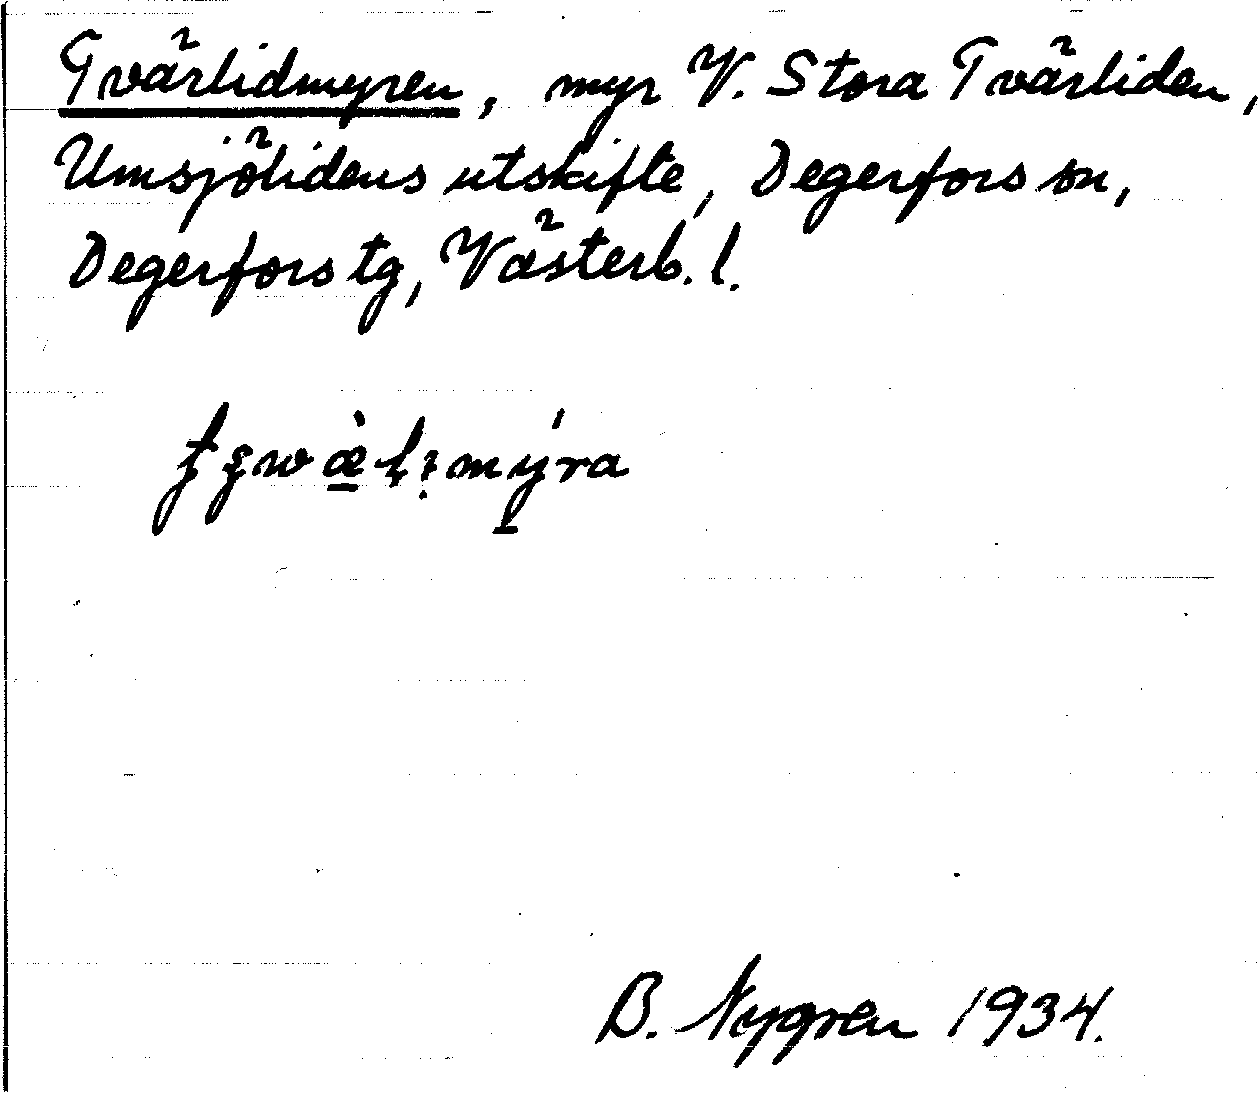 Tvärlidmyren, myr V. Stora Tvärliden,
Umsjölidens utskifte, Degerfors sn,
Degerfors tg, Västerb. l.
B. Nygren 1934.